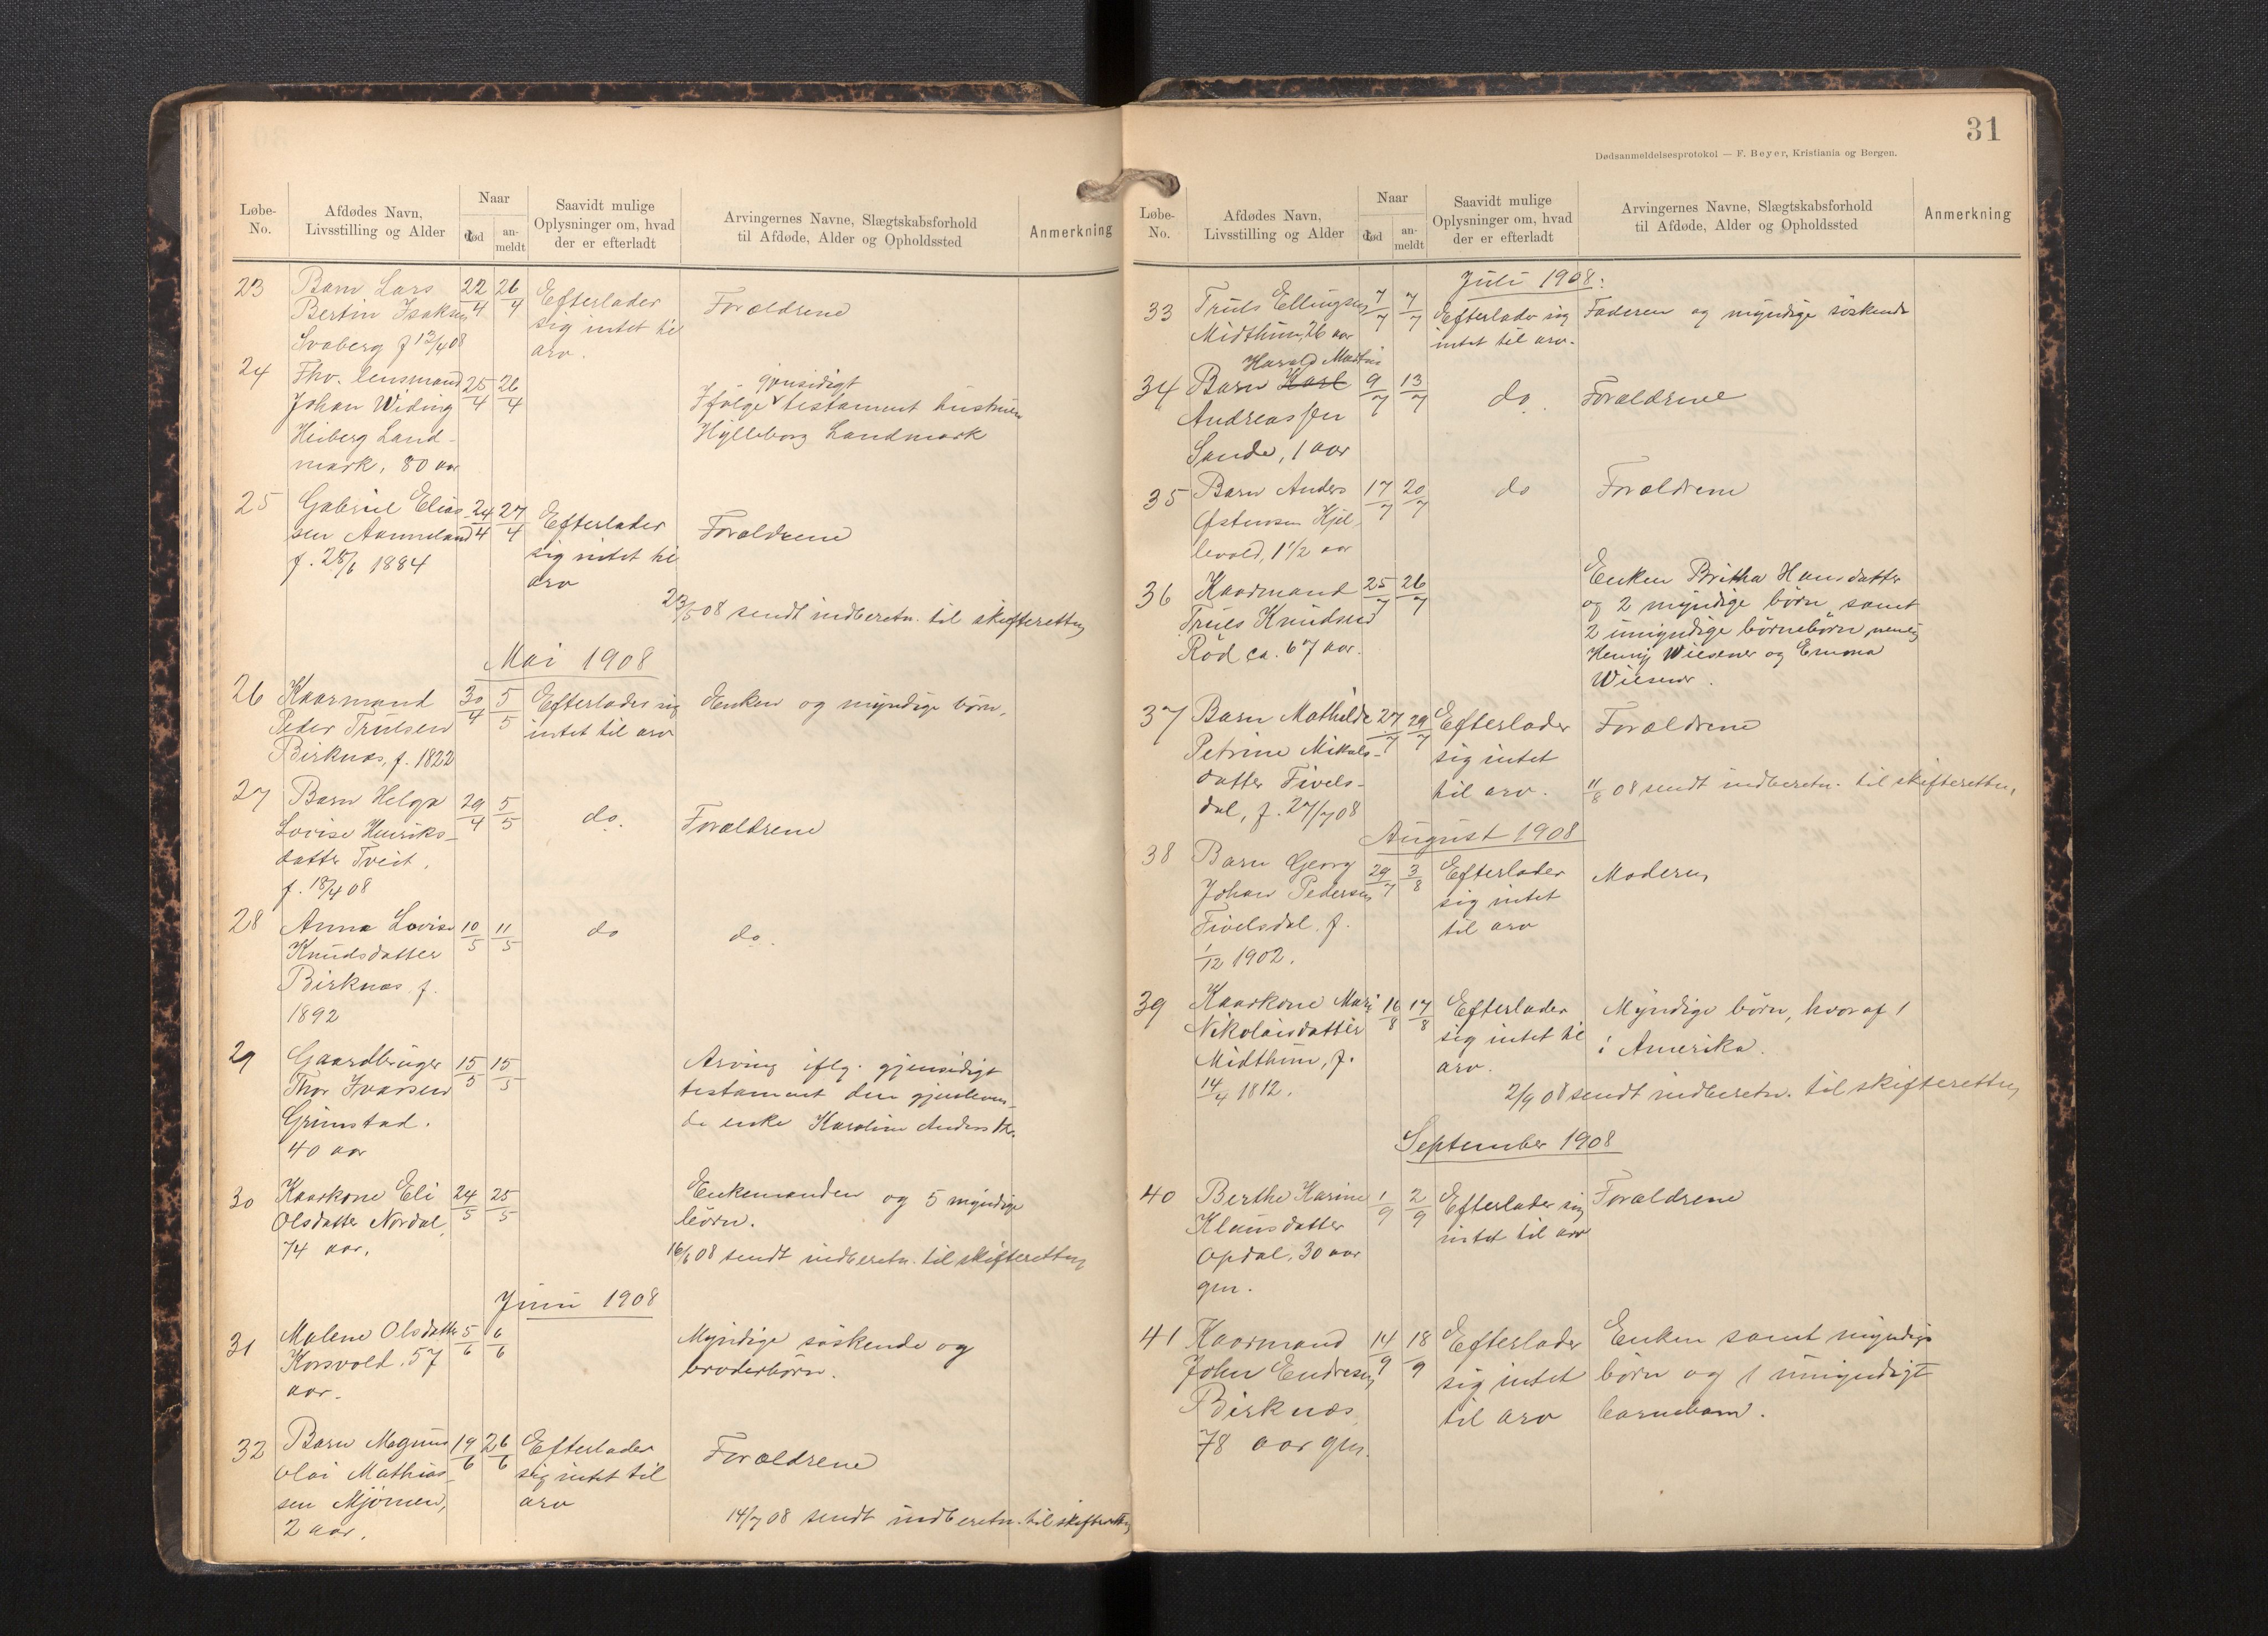 Løbe-No.
Afdødes Navn, Livsstilling og Alder
Naar
død
an-meldt
Saavidt mulige Oplysninger om, hvad der er efterladt
Arvingernes Navne, Slægtskabsforhold til Afdøde, Alder og Opholdssted
Anmerkning
23 Barn Lars 22/4 26/4 Efterlader Forældrene
Bertin Isaksen sig intet til
Svaberg f 12/4 08 arv.
24 Fhv. lensmand 25/4 26/4 gjensidigt
Johan Widing Ifølge testament hustruen
Heiberg Land- Hylleborg Landmark
mark, 80 aar
25 Gabriel Elias- 24/4 27/4 Efterlader Forældrene
sen Aanneland sig intet til
f. 25/6 1884 arv
23/5 08 sendt indberetn. til skifteretten
Mai 1908
26 Kaarmand 30/4 5/5 Efterlader sig Enken og myndige børn.
Peder Trulsen intet til arv
Birknæs, f. 1822
27 Barn Helga 29/4 5/5 do. Forældrene
Lovise Henriks-
datter Tveit,
f. 18/4 08
28 Anna Lovise 10/5 11/5 do do.
Knudsdatter
Birknæs f.
1892
29 Gaardbruger 15/5 15/5 Arving iflg. gjensidigt
Thor Ivarsen testament den gjenleven-
Grimstad. de enke Karoline Anders dtr.
40 aar
30 Kaarkone Eli 24/5 25/5 Enkemanden og 5 myndige
Olsdatter Nordal, børn.
74 aar.
16/6 08 sendt indberetn. til skifteretten
Juni 1908
31 Malene Olsdatter 5/6 6/6 Myndige søskende og
Korsvold, 57 broderbørn.
aar.
32 Barn Magnus 19/6 26/6 Efterlader Forældrene
Olai Mathias- sig intet til
sen Mjømen, arv
2 aar.
14/7 08 sendt indberetn. til skifteretten
31
Dødsanmeldelsesprotokol — F. Beyer, Kristiania og Bergen.
Løbe-No.
Afdødes Navn, Livsstilling og Alder
Naar
død
an-meldt
Saavidt mulige Oplysninger om, hvad der er efterladt
Arvingernes Navne, Slægtskabsforhold til Afdøde, Alder og Opholdssted
Anmerkning
Juli 1908.
33 Truls Ellingsen 7/7 7/7 Efterlader sig Faderen og myndige søskende
Midthun, 26 aar intet til arv.
Harald Martin
34 Barn Karl 9/7 13/7 do. Forældrene
Andreassen
Sande, 1 aar
35 Barn Anders 17/7 20/7 do Forældrene
Østensen Kjel-
levold, 1 1/2 aar
36 Kaarmand 25/7 26/7 Enken Britha Hansdatter
Truls Knudsen og 2 myndige børn samt
Rød ca. 67 aar. 2 umyndige børnebørn, nemlig
Henny Wiesener og Emma
Wiesener.
37 Barn Mathilde 27/7 29/7 Efterlader Forældrene
Petrine Mikals- sig intet
datter Fivels- til arv.
dal, f. 27/7 08
11/8 08 sendt indberetn. til skifteretten,
August 1908
38 Barn Georg 29/7 3/8 Efterlader Moderen
Johan Pedersen sig intet
Fivelsdal, f. til arv
1/12 1902.
39 Kaarkone Mari 16/8 17/8 Efterlader Myndige børn, hvoraf 1
Nikolaisdatter sig intet til i Amerika.
Midthun, f. arv.
14/4 1812.
2/9 08 sendt indberetn. til skifteretten
September 1908
40 Berthe Karine 1/9 2/9 Efterlader sig Forældrene
Klausdatter intet til arv
Opdal, 30 aar
gm.
41 Kaarmand 14/9 18/9 Efterlader Enken samt myndige
John Endresen sig intet børn og 1 umyndigt
Birknæs til arv barnebarn.
78 aar gm.